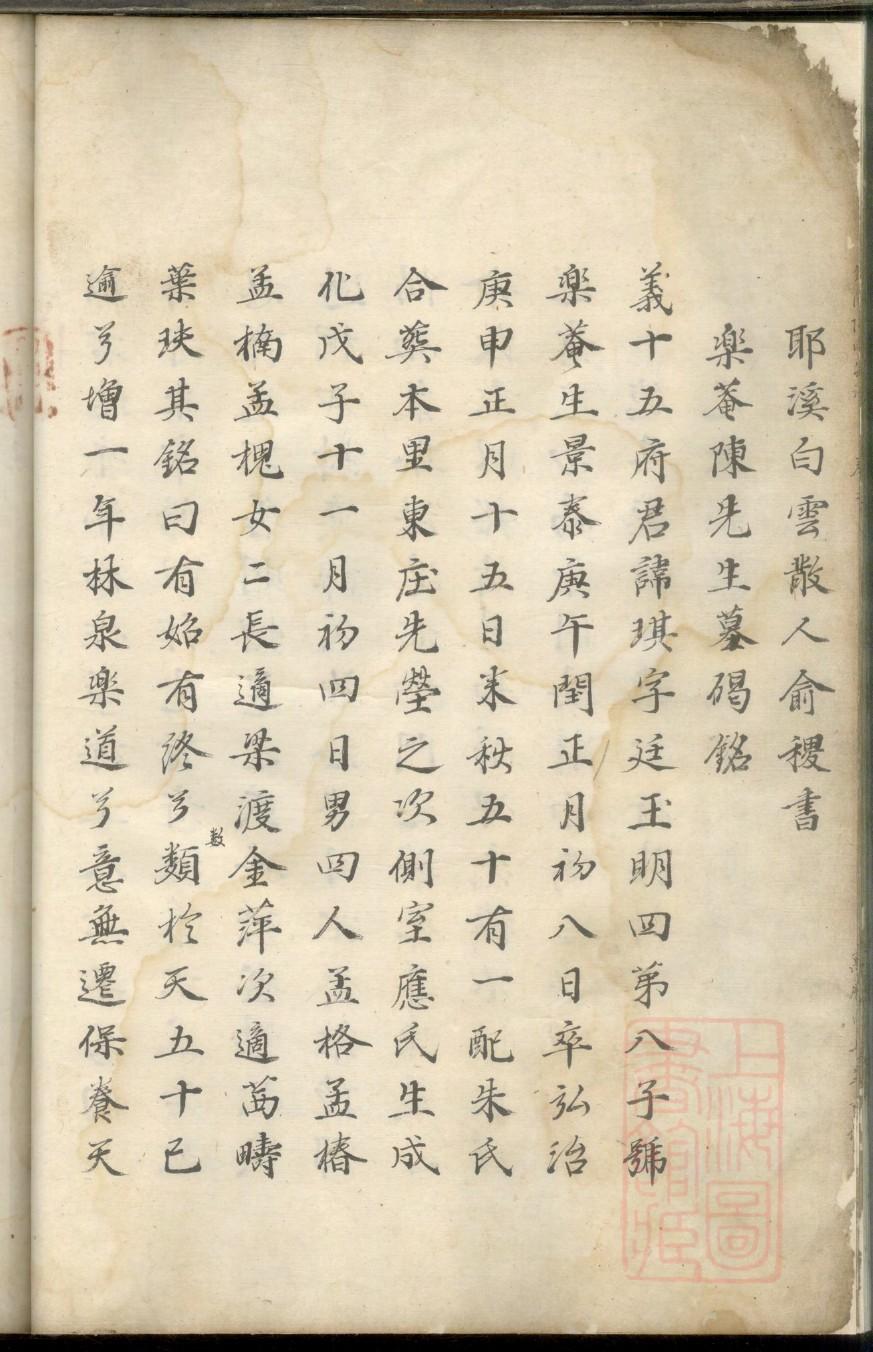 耶溪白雲散人俞稷書
楽菴陳先生墓碣銘
義十五府君諱琪字廷玉明四第八子號
楽菴生景泰庚午閏正月初八日卒弘治
庚申正月十五日来秋五十有一配朱氏
合葬本里東庄先塋之次側室應氏生成
化戊子十一月初四日男四人孟格孟椿
孟楠孟槐女二長適梁渡金萍次適茜疇
葉珙其銘曰有始有终兮類於天五十已
數
逾兮增一年林泉楽道兮意無遷保養天
上海圖
書館藏